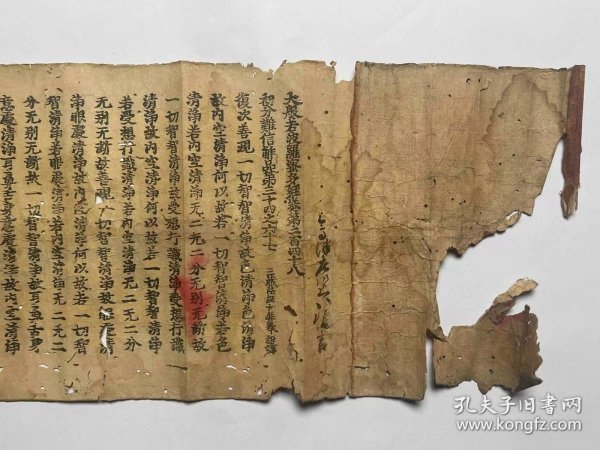 大般若波羅蜜多經卷第二百四十八
初分難信解品第三十四之六十七
三藏法師玄奘奉 詔譯
復次善現一切智智清淨故色清淨色清淨
故內空清淨何以故若一切智智清淨若色
清淨若內空清淨无二无二分无別无斷故
一切智智清淨故受想行識清淨受想行識
清淨故內空清淨何以故若一切智智清淨
若受想行識清淨若內空清淨无二无二分
无別无斷故善現一切智智清淨故眼處清
淨眼處清淨故內空清淨何以故若一切智
智清淨若眼處清淨若內空清淨无二无二
分无別无斷故一切智智清淨故耳鼻舌身
意處清淨耳鼻舌身意處清淨故內空清淨
孔夫子旧书网
www.kongfz.com